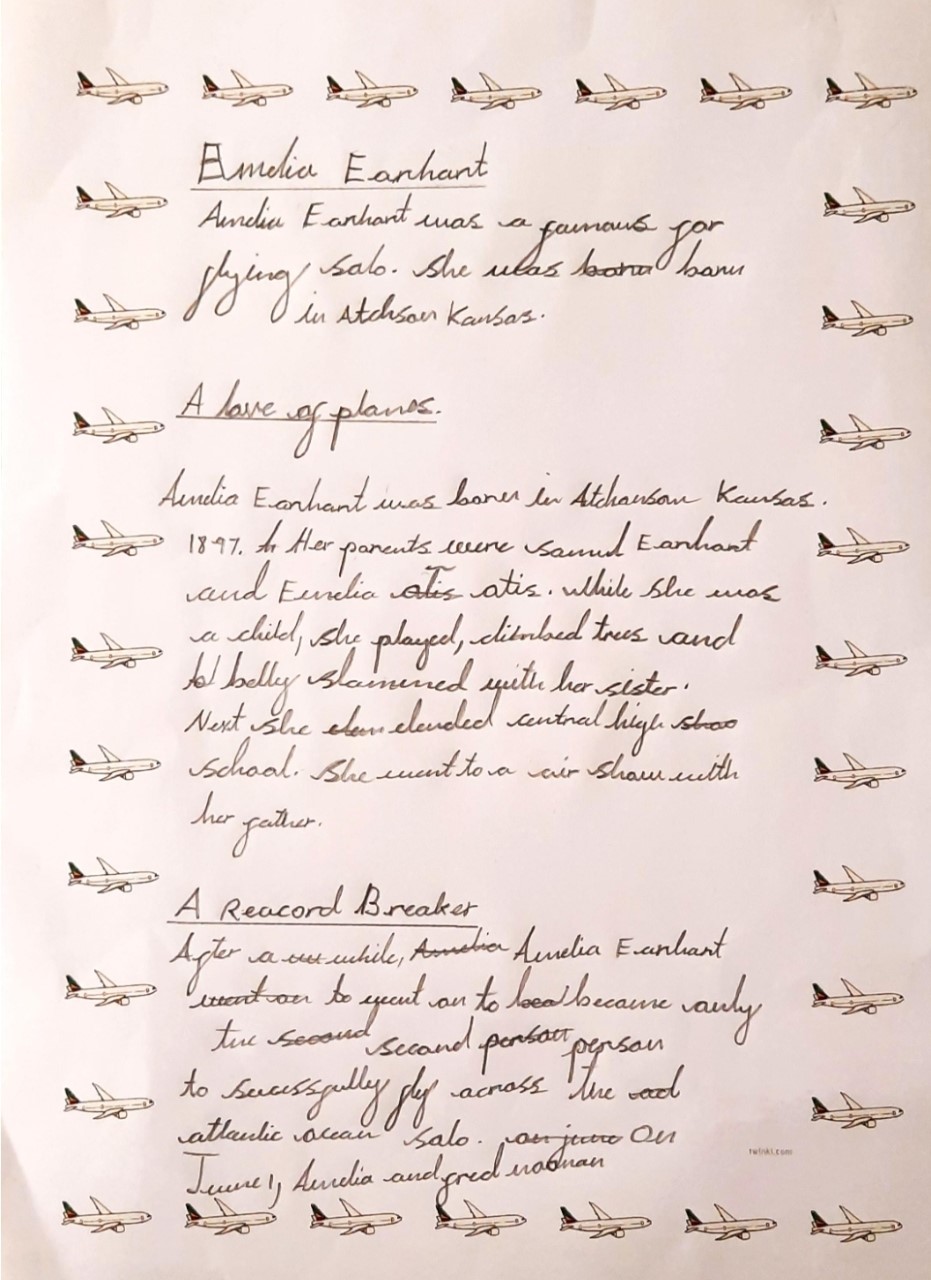 Amelia Earhart
Amelia Earhart was a famous for
flying solo. She was born born
in Atchson Kansas.
A love of planes.
Amelia Earhart was born in Atchanson Kansas.
1897. Her parents were samul Earhart
and Emelia otis otis. While she was
a child, she played, climbed trees and
belly slammed with her sister.
Next she elended central high
school. She went to a air show with
her father.
A Reacord Breaker
After a while, Amelia Amelia Earhart
went on to went on to became only
the second second person person
to sucessfully fly across the
atlantic ocean solo. on june On
June 1, Amelia and fred noonan
twinkl.com